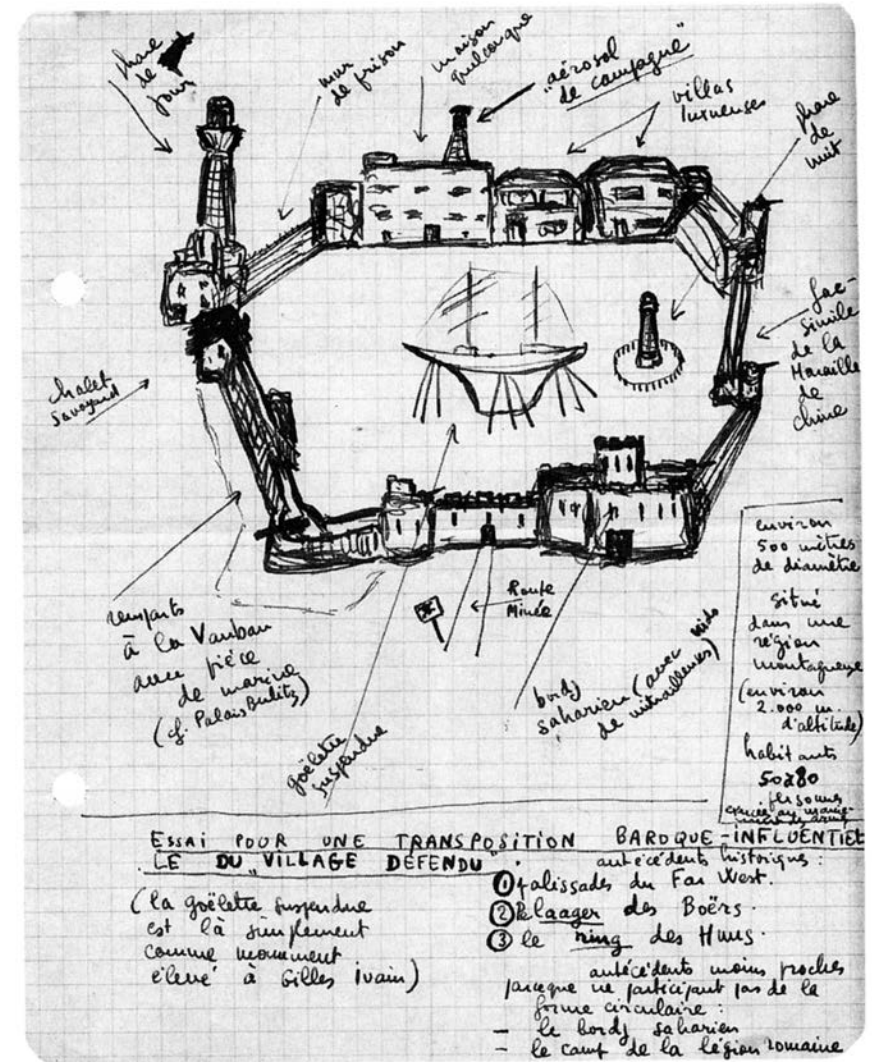 phare
de
jour
mur
de prison
maison
quelconque
"aérosol
de campagne"
villas
luxueuses
phare
de
nuit
fac-
simile
de la
Muraille
de
chine
chalet
savoyard
remparts
à la Vauban
avec pièce
de marine
(cf. Palais Bulitz)
goëlette
suspendue
Route
Minée
bordj
saharien (avec nids
de mitrailleuses)
environ
500 mètres
de diamètre
situé
dans une
région
montagneuse
(environ
2.000 m.
d'altitude)
habitants
50 à 80
personnes
ESSAI POUR UNE TRANSPOSITION BAROQUE-INFLUENTIEL
LE DU "VILLAGE DÉFENDU".
(la goëlette suspendue
est là simplement
comme monument
élevé à Gilles Ivain)
antécédents historiques :
① palissades du Far West.
② le laager des Boërs.
③ le ring des Huns.
antécédents moins proches
parceque ne participant pas de la
forme circulaire :
– le bordj saharien
– le camp de la légion romaine